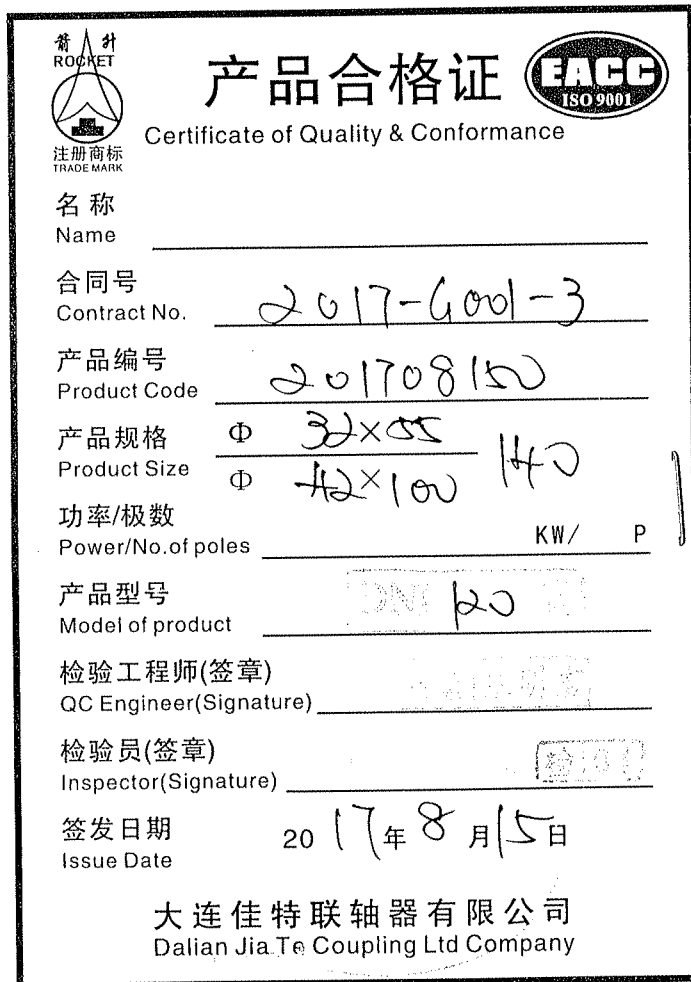 箭 升
ROCKET
注册商标
TRADE MARK
产品合格证
Certificate of Quality & Conformance
EACC
ISO 9001
名 称
Name
合同号
Contract No. 2017-G001-3
产品编号
Product Code 201708150
产品规格 Φ 32×55
Product Size Φ 42×100 140
功率/极数
Power/No.of poles KW/ P
产品型号
Model of product 120
检验工程师(签章)
QC Engineer(Signature)
检验员(签章)
Inspector(Signature)
签发日期
Issue Date 2017年8月15日
大连佳特联轴器有限公司
Dalian Jia Te Coupling Ltd Company